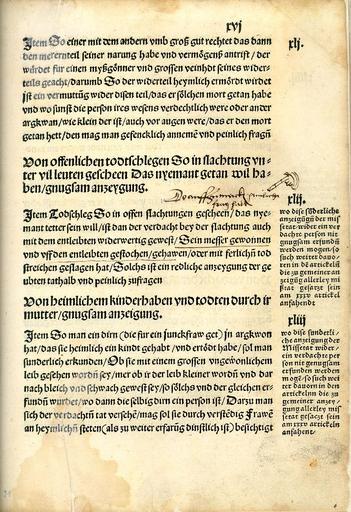 xvj
Item So einer mit dem andern vmb groß gut rechtet das dann
den merernteil seiner narung habe vnd vermögens antrifft / der
würdet für einen myßgönner vnd grossen veindt seines wider-
teils geacht / darumb So der widerteil heymlich ermördt wirdet
ist ein vermuttūg wider disen teil / das er sölchen mort getan habe
vnd wo sunst die person ires wesens verdechtlich were oder ander
argkwan / wie klein der ist / auch vor augen were / das er den mort
getan hett / den mag man gefencklich annemē vnd peinlich fragñ
xlj.
Von offenlichen todtschlegen So in slachtung vn-
ter vil leuten gescheen Das nyemant getan wil ha-
ben / gnugsam anzeygung.
Item Todschleg So in offen slachtungen gescheen / das nye-
mant tetter sein will / ist dan der verdacht bey der slachtung auch
mit dem entleibten widerwertig gewest / Sein messer gewonnen
vnd vff den entleibten gestochen / gehawen / oder mit ferlichñ tod
streichen geslagen hat / Solchs ist ein redliche anzeygung der ge
ubten tathalb vnd peinlich zufragen
xlij.
wo dise
anzeigūg der mis
setat wider ein ver
dachte person nit
gnugsam erfundē
würden
so such weiter da
uorn in dē artickelñ
die zu gemeiner an
zeigūg allerley mis
setat gesatzt sein
am xxxv artickel
anfahendt
Von heimlichem kinderhaben vnd todten durch ir
mutter / gnugsam anzeigung.
Item So man ein dirn (die für ein junckfraw get) in argkwon
hat / das sie heimlich ein kindt gehabt / vnd ertödt habe / sol man
sunderlich erkunden / Ob sie mit einem grossen vngewonlichem
leib gesehen wordñ sey / mer ob ir der leib kleiner wordñ vnd dar
nach bleich vnd schwach gewest sey / so sölchs vnd der gleichen er-
fundñ würdet / wo dann die selbig dirn ein person ist / Darzu man
sich der verdachtñ tat versehē / mag sol sie durch verstēdig Frawē
an heymlichñ stetten (als zu weiter erfarūg dinstlich ist) besichtigt
xliij
wo dise sunderli-
che anzeigung der
Missetat wider
ein verdachte per
son nit gnugsam
erfunden werden
möge / so such wei
ter dauorn in den
artickelnn die zu
gemeiner anzey-
gūg allerley mis
setat gesatzt sein
am xxxv artickel
anfahent.